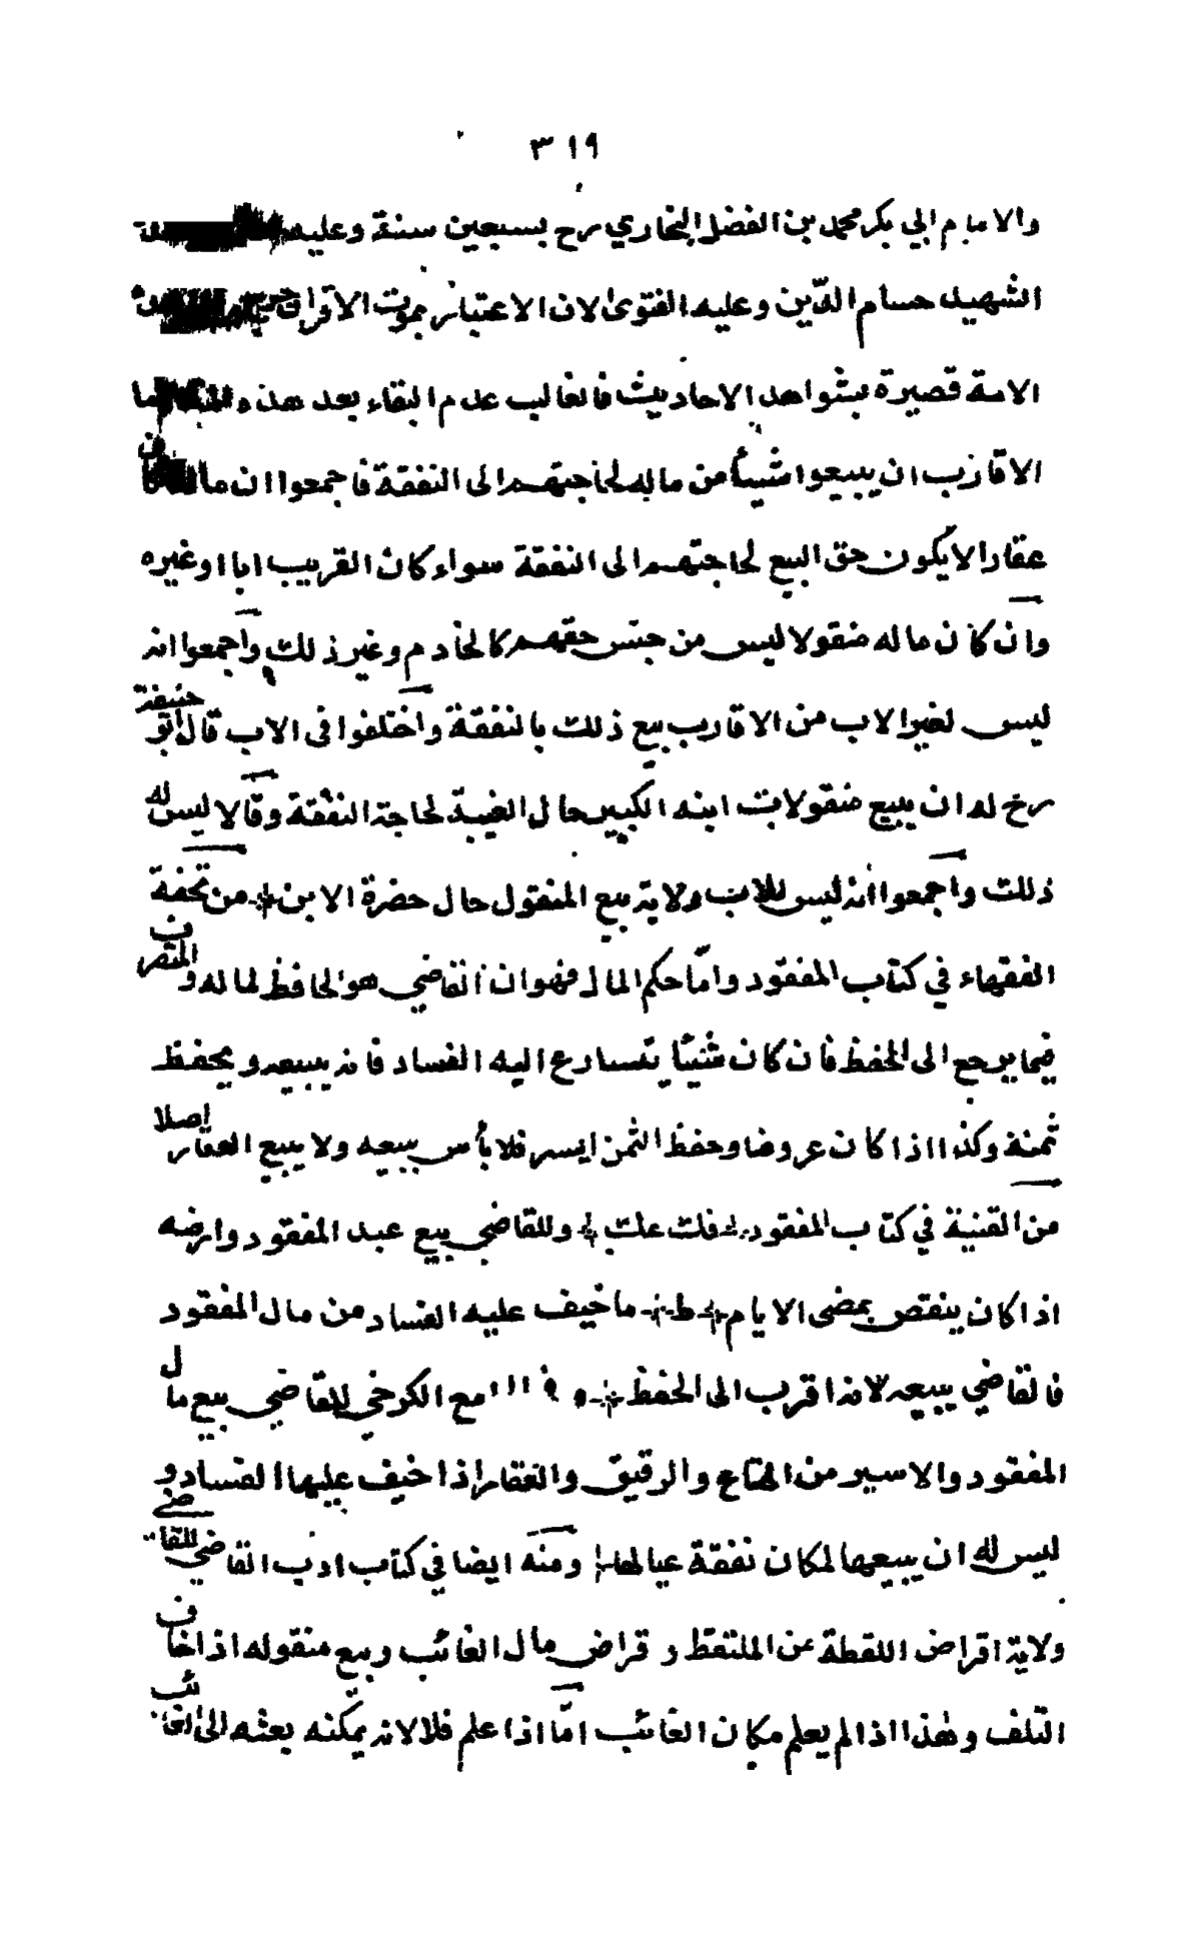 ٣١٩
والامام ابي بكر محمد بن الفضل البخاري رح بسبعين سنة وعليه
الشهيد حسام الدّين وعليه الفتوى لان الاعتبار بموت الاقران
الامة قصيرة بشواهد الاحاديث فالغالب عدم البقاء بعد هذه
الاقارب ان يبيعوا شيئا من ماله لحاجتهم الى النفقة فاجمعوا ان ماله كان
عقارا لا يكون حق البيع لحاجتهم الى النفقة سواء كان القريب ابا اوغيره
وان كان ماله منقولا ليس من جنس حقهم كالخادم وغير ذلك واجمعوا انه
ليس لغير الاب من الاقارب بيع ذلك بالنفقة واختلفوا فى الاب قال ابو حنيفة
رح له ان يبيع منقولات ابنه الكبير حال الغيبة لحاجة النفقة وقالا ليس له
ذلك واجمعوا انه ليس للاب ولاية بيع المنقول حال حضرة الابن من تحفة
الفقهاء في كتاب المفقود وامّا حكم المال فهو ان القاضي هو الحافظ لماله و المتصرف
فيما يرجع الى الحفظ فان كان شيئا يتسارع اليه الفساد فانه يبيعه ويحفظ
ثمنه وكذا اذا كان عروضا وحفظ الثمن ايسر فلا بأس ببيعه ولا يبيع العقار اصلا
من القنية في كتاب المفقود قلت علت وللقاضي بيع عبد المفقود وارضه
اذا كان ينقص بمضى الايام ط ما خيف عليه الفساد من مال المفقود
فالقاضي يبيعه لانه اقرب الى الحفظ الكرخي للقاضي بيع مال
المفقود والاسير من المتاع والرقيق والعقار اذا خيف عليها الفساد و
ليس له ان يبيعها لمكان نفقة عيالها ومنه ايضا في كتاب ادب القاضي للقاضي
ولاية اقراض اللقطة من الملتقط و قراض مال الغائب وبيع منقوله اذا خاف
التلف وهذا اذا لم يعلم مكان الغائب امّا اذا علم فلا لانه يمكنه بعثه الى الغائب